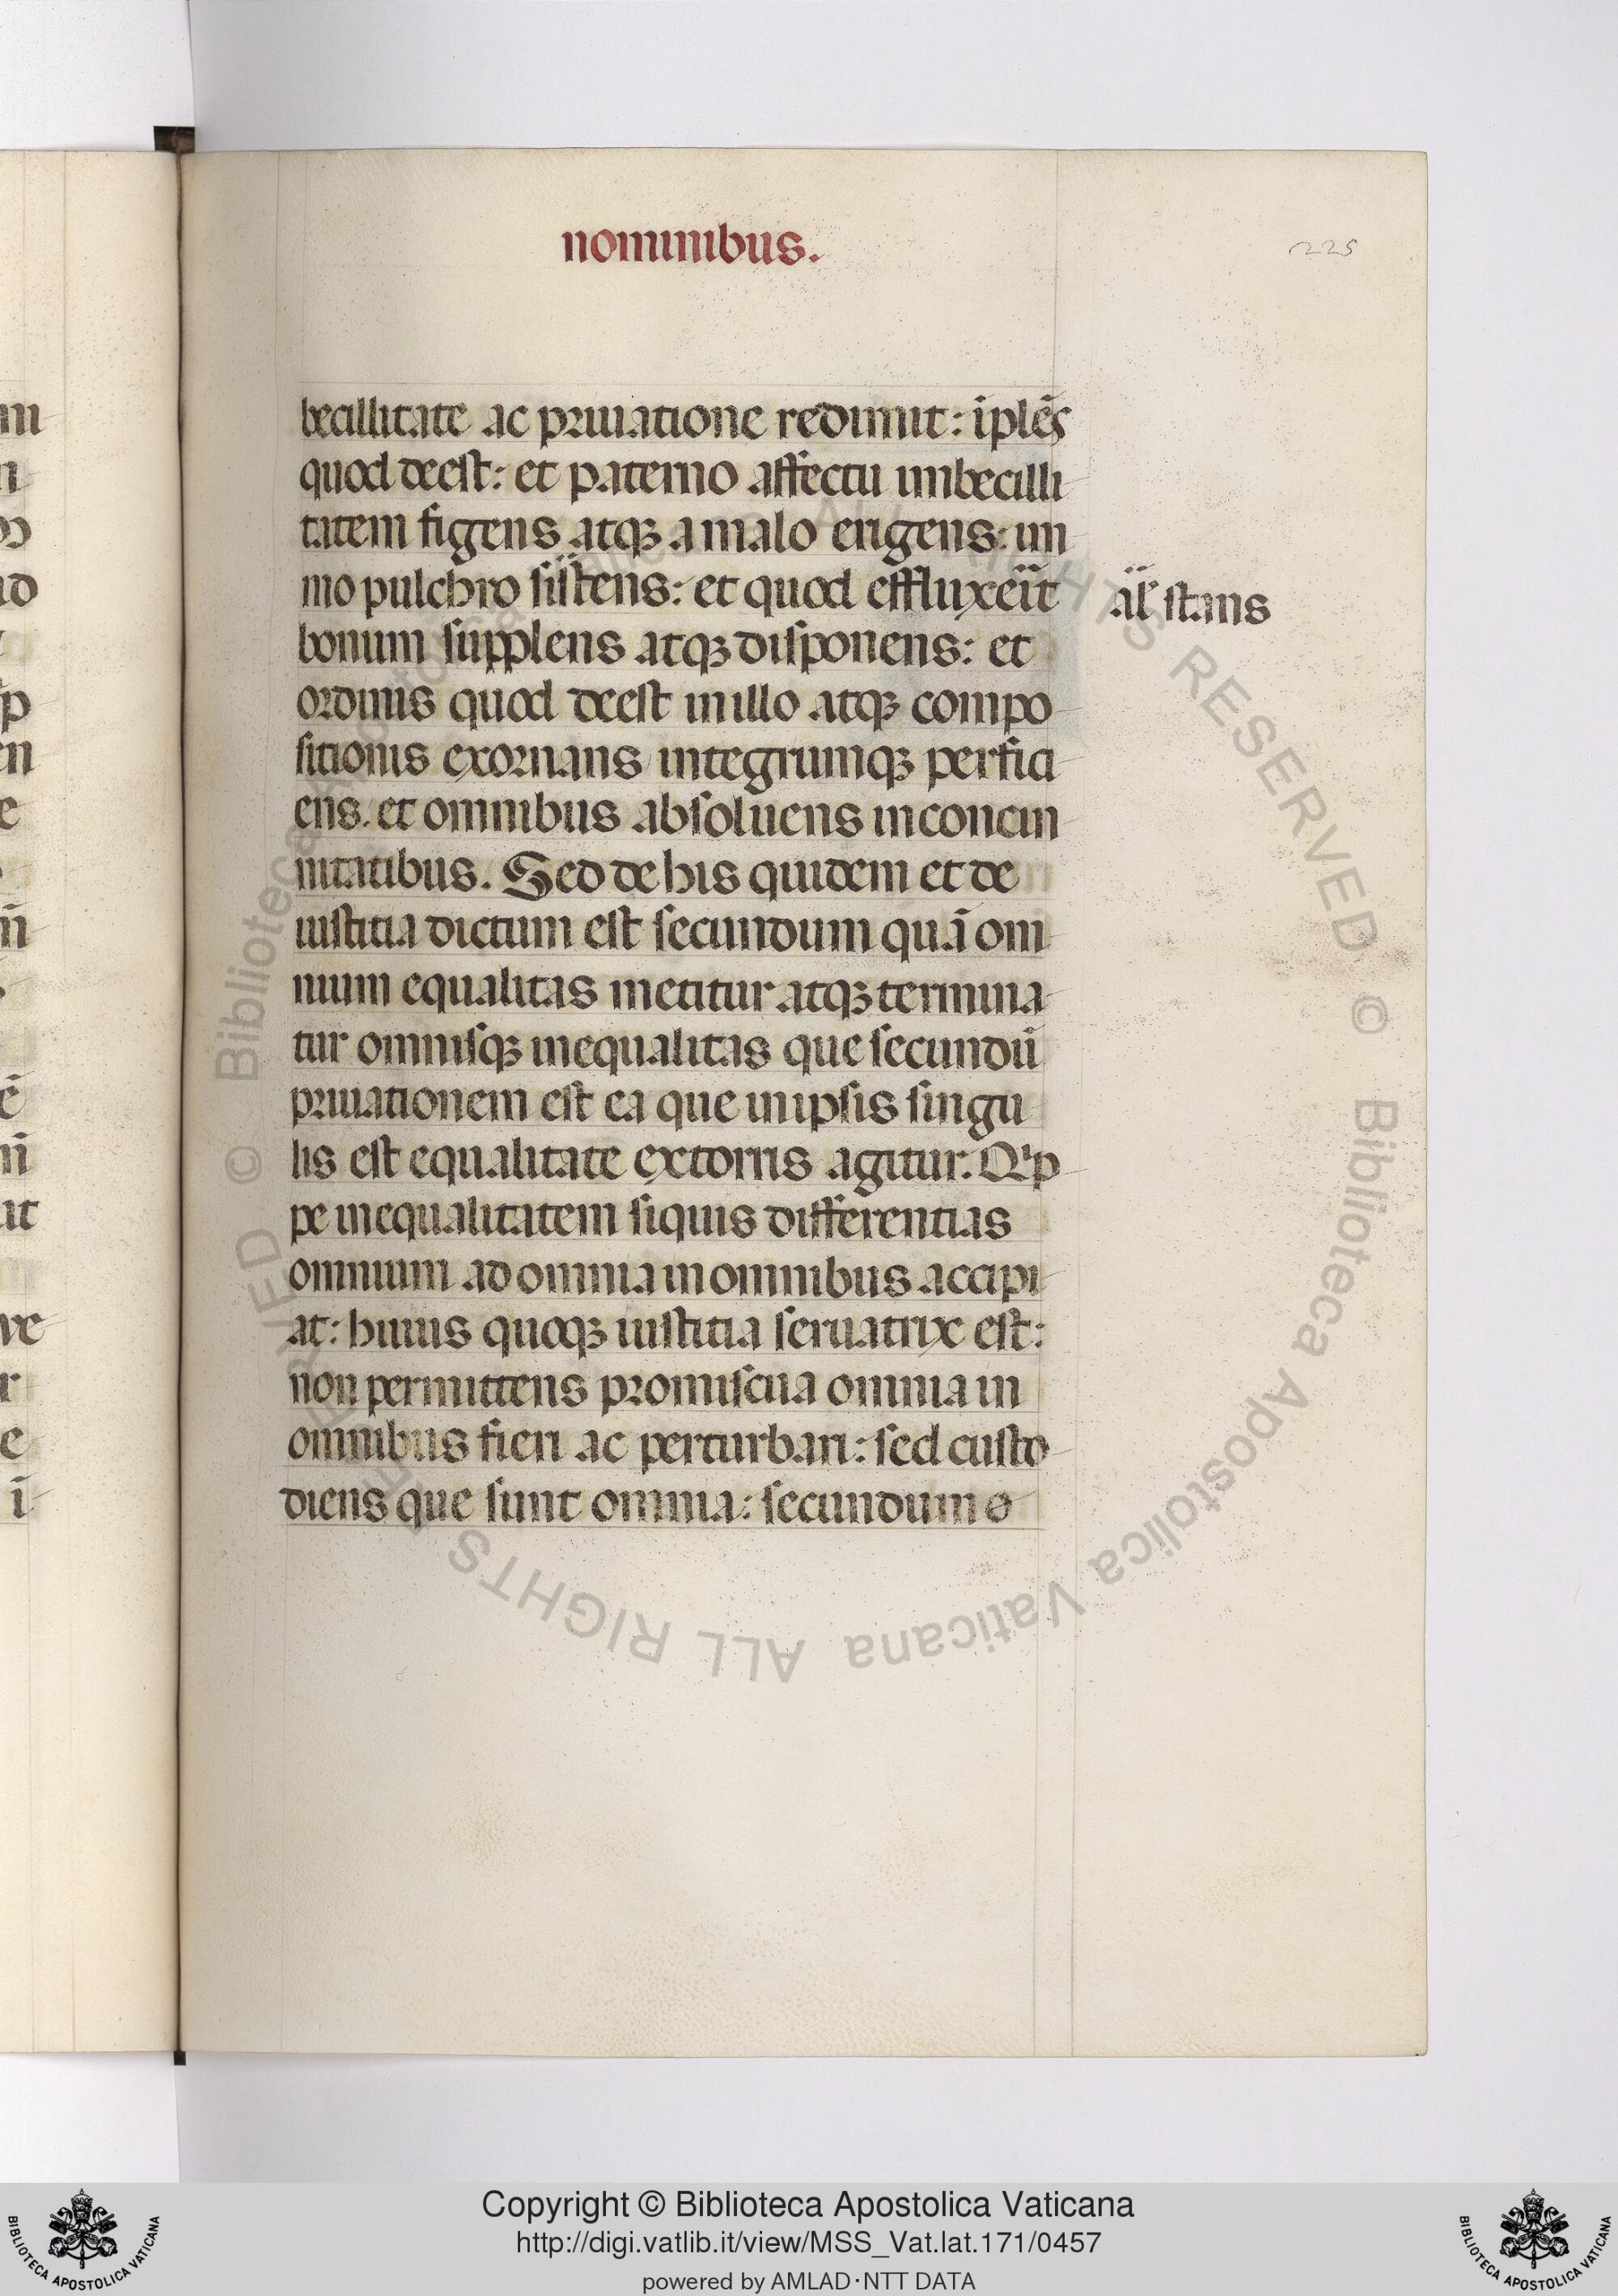 nominibus.
225
becillitate ac priuatione redimit: īplēs
quod deest: et paterno affectu imbecilli
tatem figens atqꝫ a malo erigens: im
mo pulchro sistens: et quod effluxeīt
al̄ stans
bonum supplens atqꝫ disponens: et
ordinis quod deest in illo atqꝫ compo
sitionis exornans integrumqꝫ perfici
ens. et omnibus absoluens inconcin
nitatibus. Sed de his quidem et de
iustitia dictum est secundum quā om
nium equalitas metitur atqꝫ termina
tur omnisqꝫ inequalitas que secundū
priuationem est ea que in ipsis singu
lis est equalitate extorris agitur. Qͥp
pe inequalitatem siquis differentias
omnium ad omnia in omnibus accipi
at: huius quoqꝫ iustitia seruatrix est:
non permittens promiscua omnia in
omnibus fieri ac perturbari: sed custo
diens que sunt omnia: secundum o
© Biblioteca Apostolica Vaticana ALL RIGHTS RESERVED
Copyright © Biblioteca Apostolica Vaticana
http://digi.vatlib.it/view/MSS_Vat.lat.171/0457
powered by AMLAD·NTT DATA
BIBLIOTECA APOSTOLICA VATICANA
BIBLIOTECA APOSTOLICA VATICANA